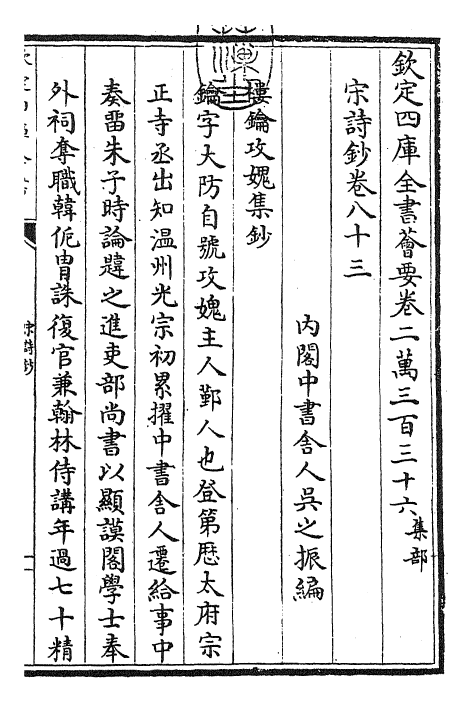 欽定四庫全書薈要卷二萬三百三十六集部
宋詩鈔卷八十三
內閣中書舍人吳之振編
樓鑰攻媿集鈔
鑰字大防自號攻媿主人鄞人也登第歷太府宗
正寺丞出知温州光宗初累擢中書舍人遷給事中
奏留朱子時論韙之進吏部尚書以顯謨閣學士奉
外祠奪職韓侂胄誅復官兼翰林侍講年過七十精
宋詩鈔